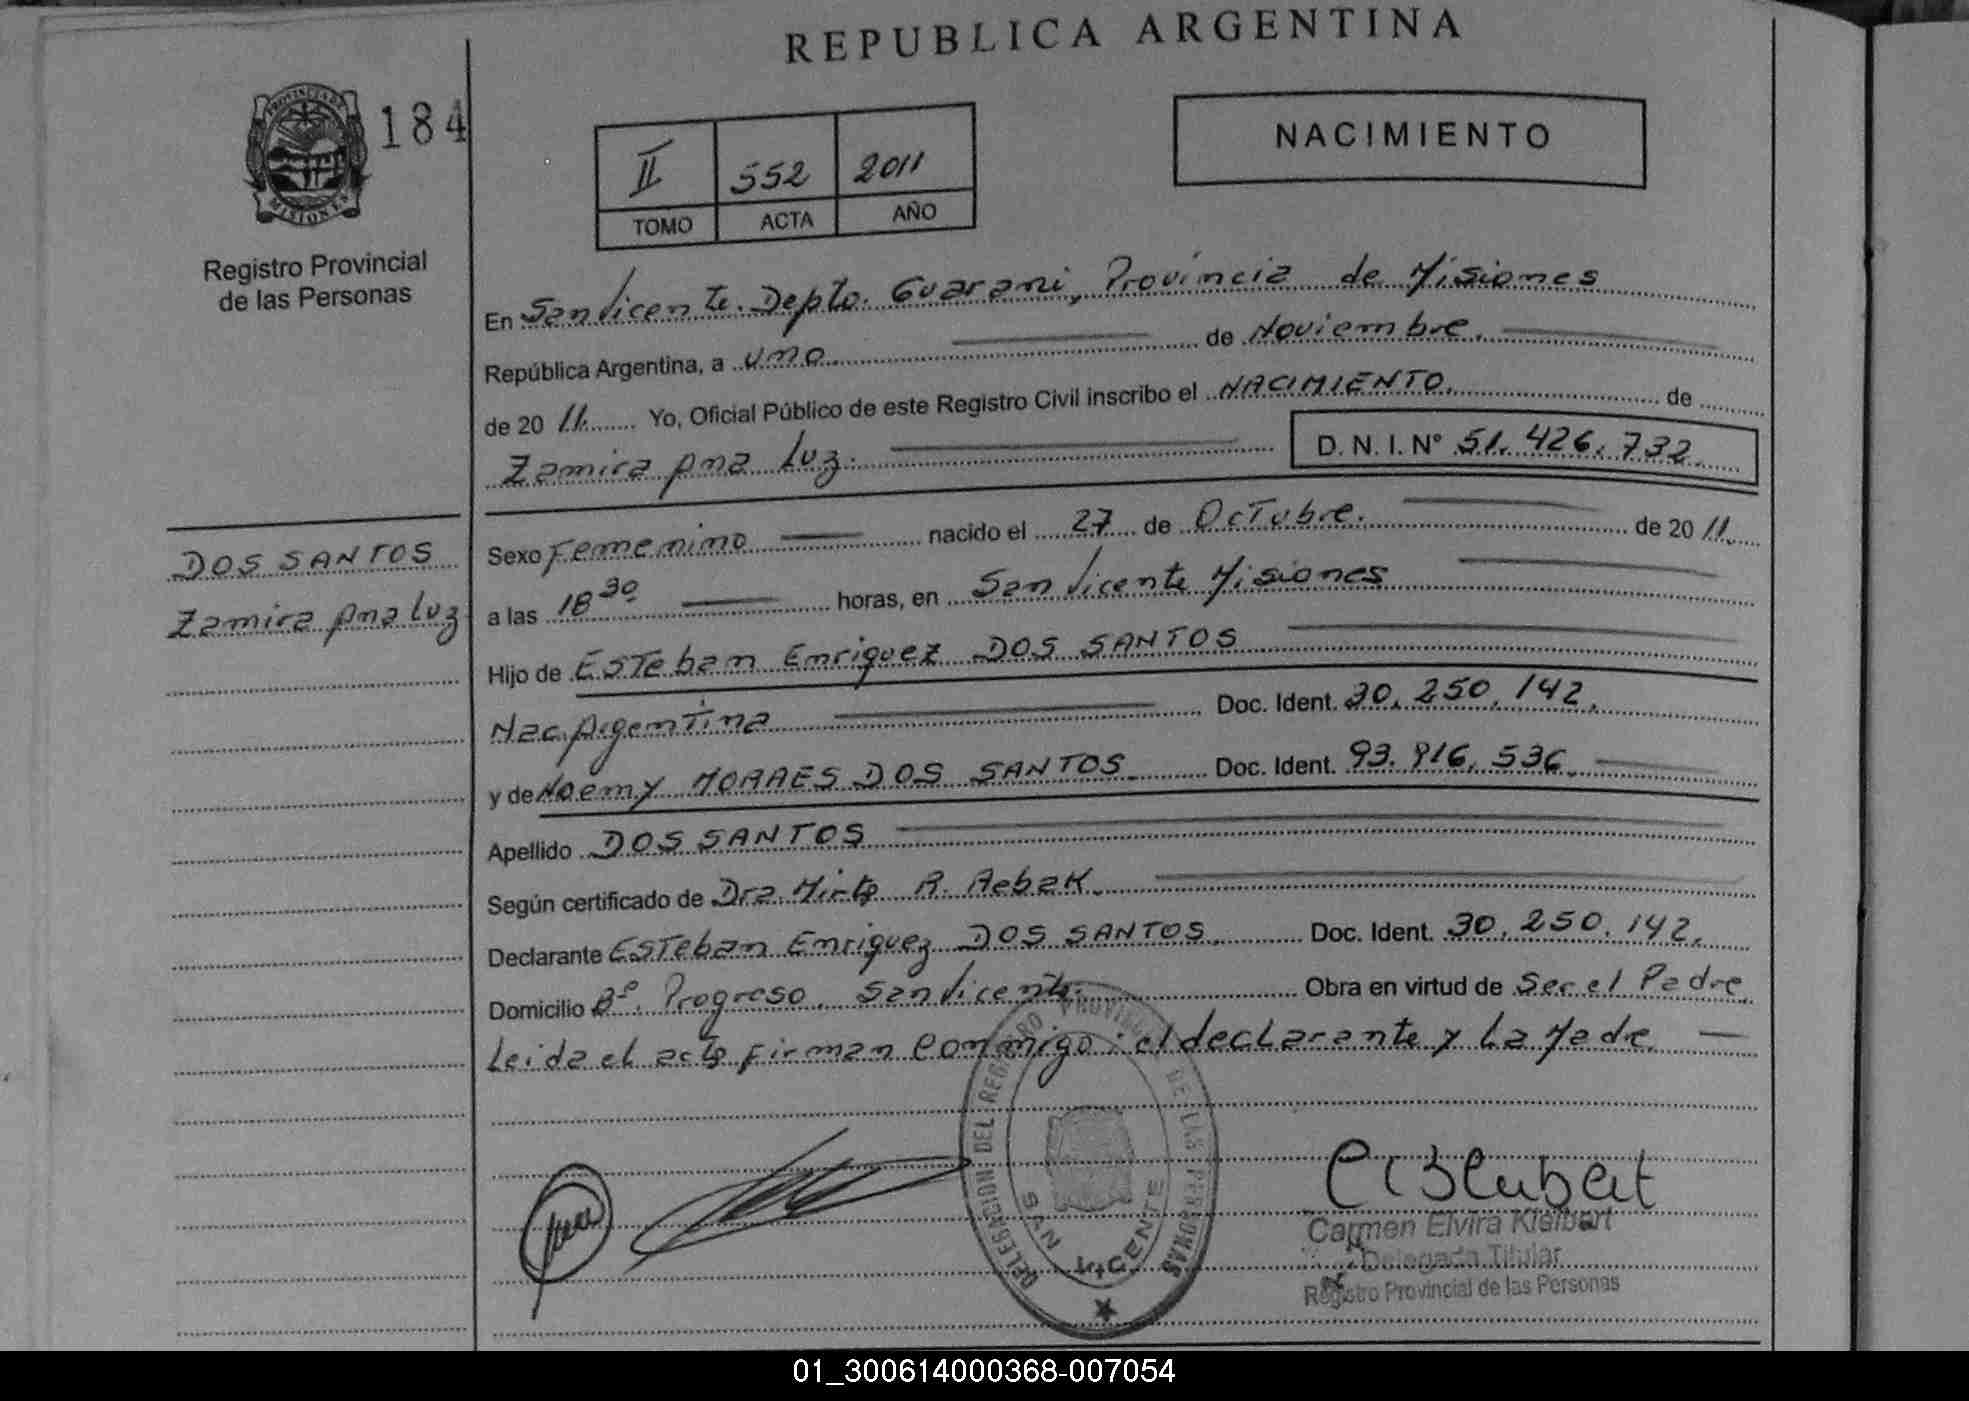 REPUBLICA ARGENTINA
PROVINCIA DE
MISIONES
184
Registro Provincial
de las Personas
II 552 2011
TOMO ACTA AÑO
NACIMIENTO
En San Vicente. Depto. Guarani, Provincia de Misiones
República Argentina, a uno de Noviembre.
de 20 11. Yo, Oficial Público de este Registro Civil inscribo el NACIMIENTO. de
Zamira Ana Luz. D. N. I. Nº 51. 426. 732.
Sexo Femenino nacido el 27 de Octubre. de 20 11.
a las 18 30 horas, en San Vicente Misiones
Hijo de Esteban Enriquez DOS SANTOS
Nac. Argentina Doc. Ident. 30. 250. 142.
y de Noemy MORAES DOS SANTOS Doc. Ident. 93. 916. 536.
Apellido DOS SANTOS
Según certificado de Dra. Mirta R. Rebak.
Declarante Esteban Enriquez DOS SANTOS. Doc. Ident. 30. 250. 142.
Domicilio Bº. Progreso. San Vicente. Obra en virtud de Ser el Padre
Leida el acta firman conmigo: el declarante y La Madre.
DOS SANTOS
Zamira Ana Luz
DELEGACION DEL REGISTRO PROVINCIAL DE LAS PERSONAS
SAN VICENTE
Carmen Elvira Kleibert
Delegada Titular
Registro Provincial de las Personas
01_300614000368-007054